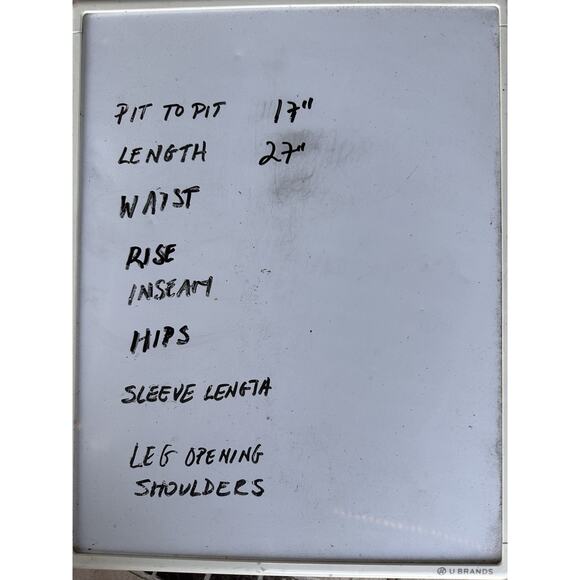 PIT TO PIT 17"
LENGTH 27"
WAIST
RISE
INSEAM
HIPS
SLEEVE LENGTH
LEG OPENING
SHOULDERS
U BRANDS